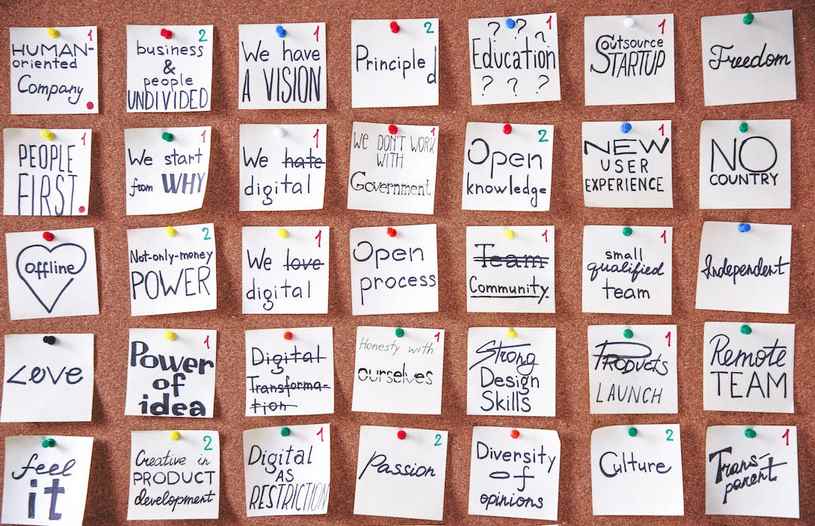 HUMAN- 1
oriented
Company
business 2
&
people
UNDIVIDED
We have 1
A VISION
Principled 2
? ? ? 1
Education
? ? ?
Outsource 1
STARTUP
Freedom
PEOPLE 1
FIRST
We start 1
from WHY
We hate 1
digital
WE DON'T WORK 1
WITH
Government
Open 2
knowledge
NEW 1
USER
EXPERIENCE
NO
COUNTRY
offline
Not-only-money 2
POWER
We love 1
digital
Open 1
process
Team 1
Community
small 1
qualified
team
Independent
Love
Power 1
of
idea
Digital
Transforma-
tion
Honesty with 1
ourselves
Strong
Design
Skills
PRODUCTS 1
LAUNCH
Remote
TEAM
feel
it
Creative in 2
PRODUCT
development
Digital 1
AS
RESTRICTION
Passion 2
Diversity
of
opinions
Culture 2
Trans- 1
parent